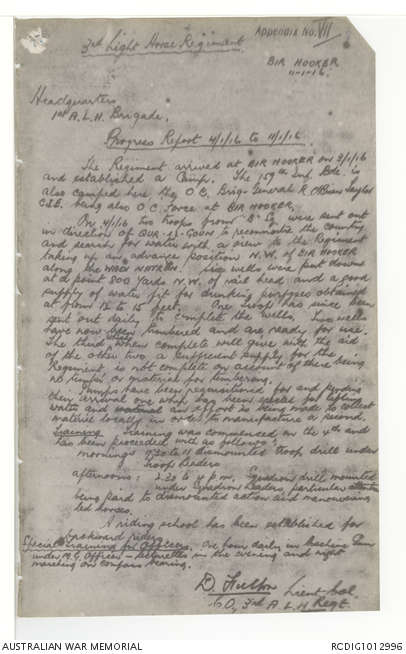 APPENDIX NO. VII
3rd Light Horse Regiment
BIR HOOKER
11-1-16.
Headquarters
1st A.L.H. Brigade.
Progress Report 4/1/16 to 11/1/16.
The Regiment arrived at BIR HOOKER on 3/1/16
and established a Camp. The 159th Inf. Bde. is
also camped here the O.C., Brig-General R. O'Brien Taylor
C.I.E. being also O.C. Force at BIR HOOKER.
On 4/1/16 two troops from "B" Sq were sent out
in direction of to reconnoitre the country
and search for water with a view to the Regiment
taking up an advance position N.W. of BIR HOOKER
along the WADI NATRUN. wells were put down
at a point 800 yards N.W. of rail head and a good
supply of water fit for drinking purposes obtained
at from 12 to 15 feet. One troop has since been
sent out daily to complete the wells. Two wells
have now been timbered and are ready for use.
The third, when complete will give with the aid
of the other two a sufficient supply for the
Regiment, is not complete on account of there being
no timber or material for timbering.
Pumps have been requisitioned for and pending
their arrival one has been for lifting
water and an effort is being made to collect
material locally in order to manufacture a second.
Training Training was commenced on the 4th and
has been proceeded with as follows:
mornings 9.30 to 11 dismounted troop drill under
Troop leaders
afternoons: 2.30 to 4 p.m. Squadron drill mounted
under Squadron leaders particular
being paid to dismounted action and manoeuvring
led horses.
A riding school has been established for
awkward riders.
Special Training for Officers. One hour daily in Machine Gun
under M.G. Officer – in the evening and night
marching on compass bearing.
D. Fulton Lieut Col.
C.O, 3rd A L H Regt.
AUSTRALIAN WAR MEMORIAL
RCDIG1012996